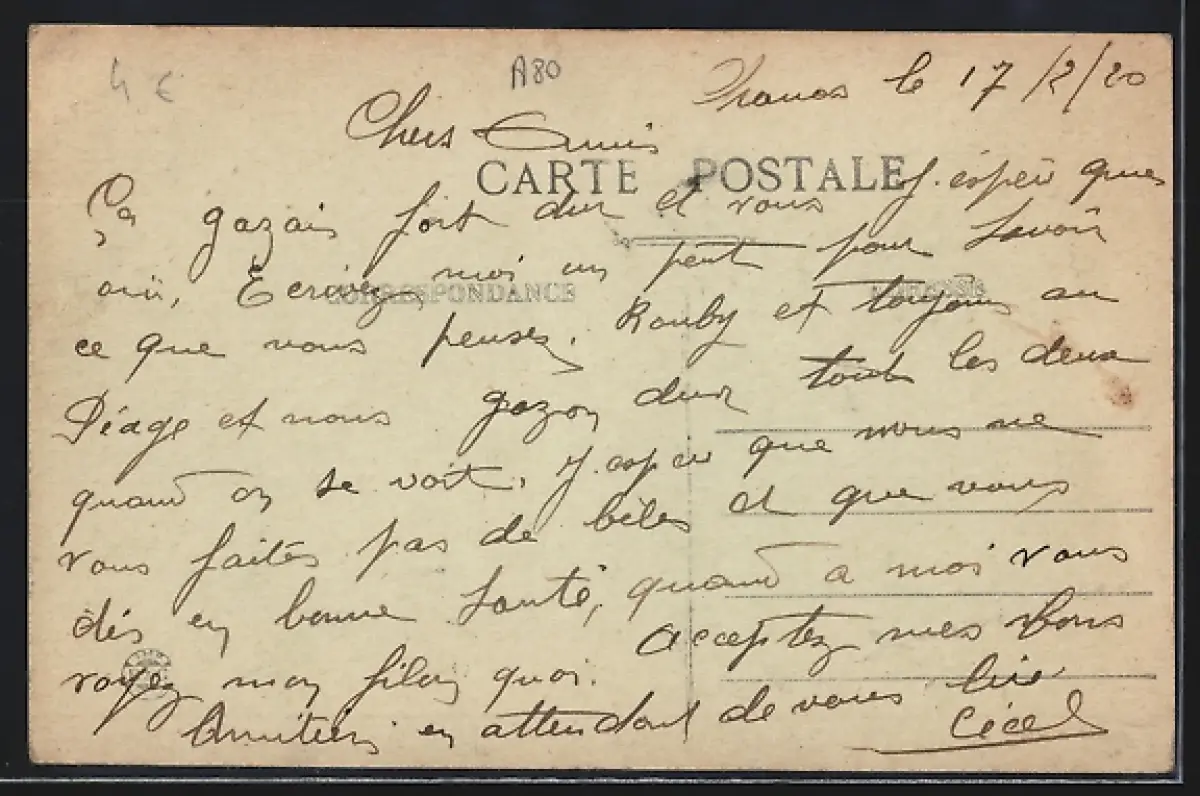 4 €
A80
le 17/2/20
Chers Amis
CARTE POSTALE
Ça gazais fort dur et vous J. espér que
oui, Ecrivez moi un peut pour savoir
CORRESPONDANCE
ce que vous pensez. Rouby et toujours au
Péage et nous gazon dur tout les deux
quand on se voit. J. espér que vous ne
vous faites pas de biles et que vous
dés en bonne santé, quand a moi vous
voyez mon filon quoi. acceptez mes bons
Amitiers en attendant de vous lire
Cécel